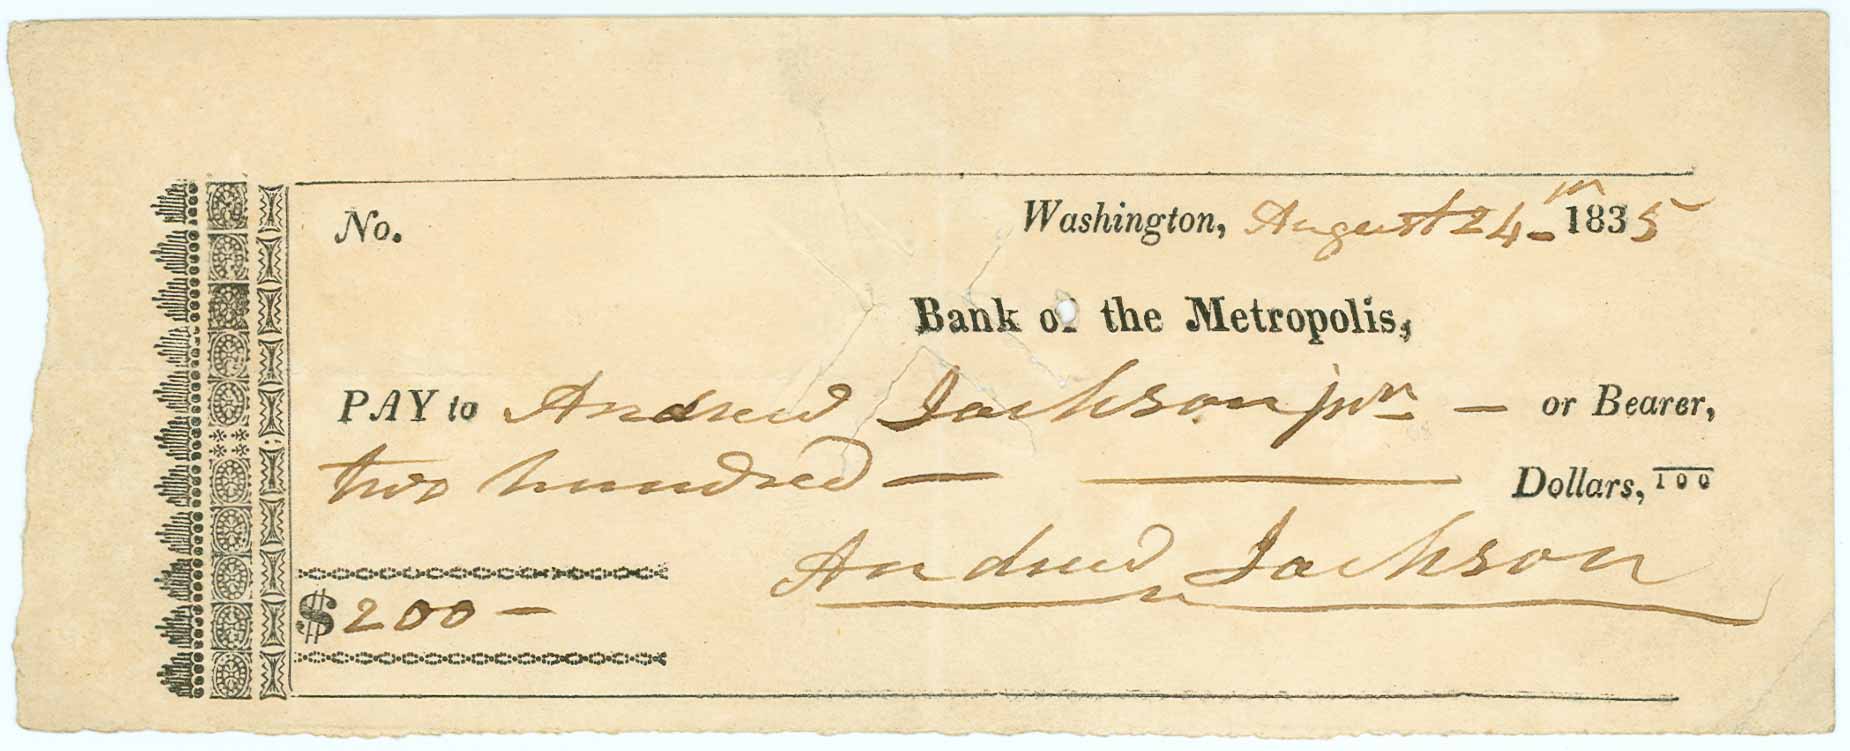 No. Washington, August 24th 1835
Bank of the Metropolis,
PAY to Andrew Jackson junr — or Bearer,
two hundred — — Dollars, 100
Andrew Jackson
$200 —